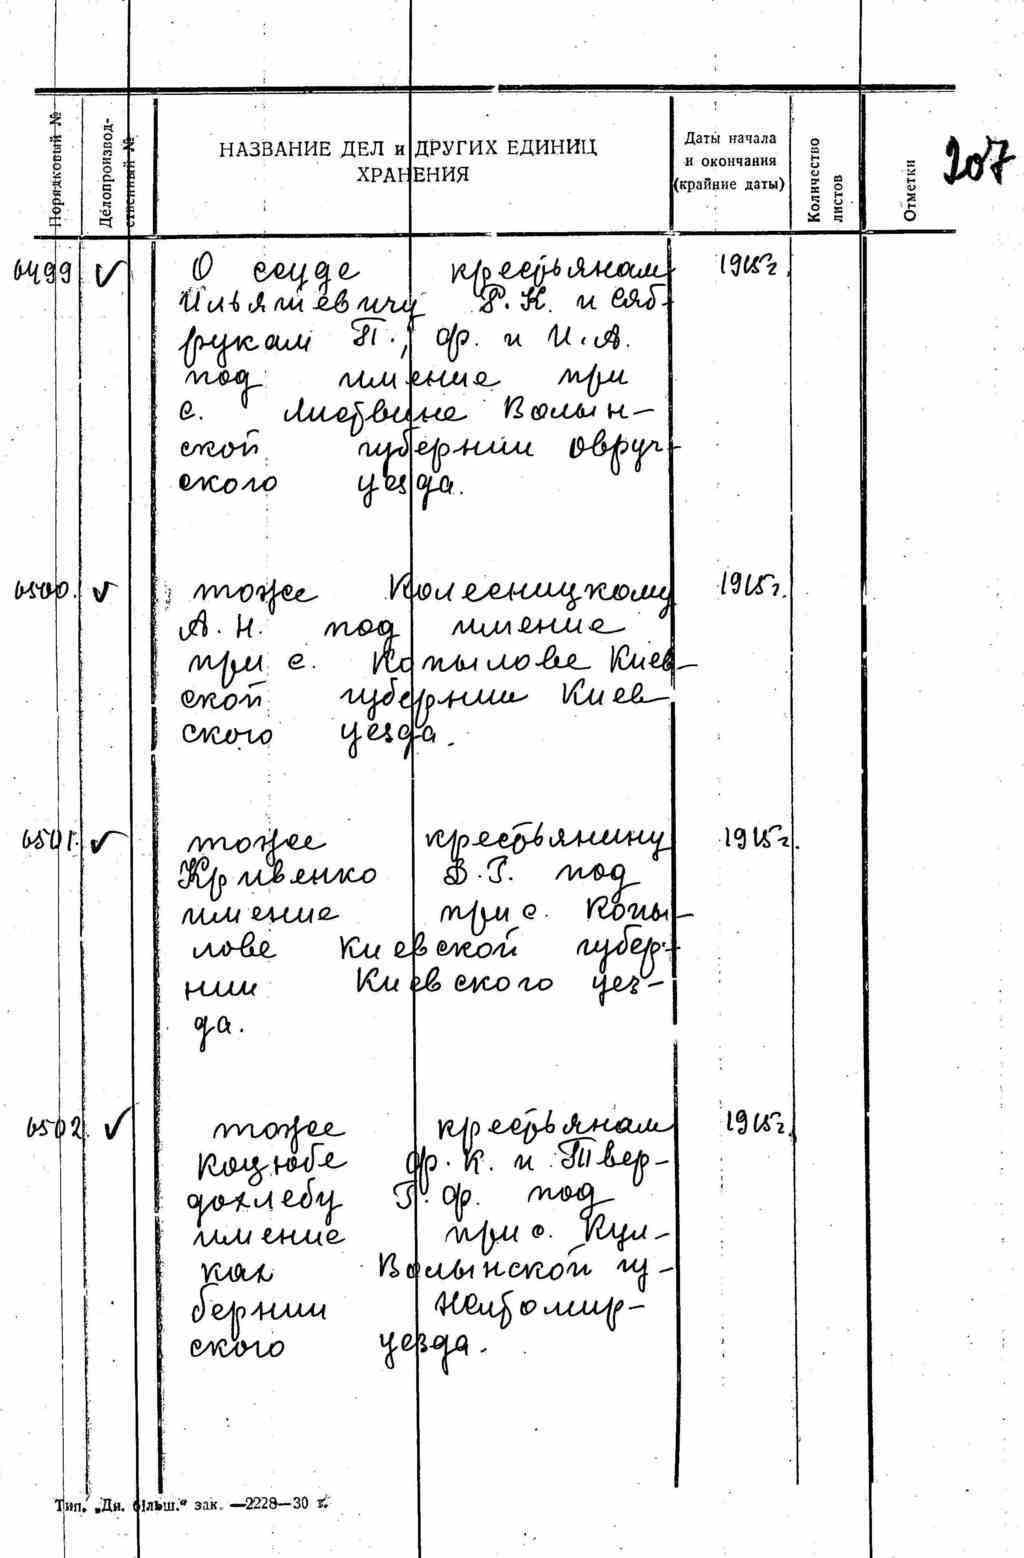 207
Порядковый №
Делопроизвод-
ственный №
НАЗВАНИЕ ДЕЛ и ДРУГИХ ЕДИНИЦ
ХРАНЕНИЯ
Даты начала
и окончания
(крайние даты)
Количество
листов
Отметки
6499 О ссуде крестьянам 1915г.
Ильяшевичу Р.К. и Сяб-
рукам П., Ф. и И.А.
под имение при
с. Листвине Волын-
ской губернии Овруч-
ского уезда.
6500. тоже Колесницкому 1915г.
А.Н. под имение
при с. Копылове Киев-
ской губернии Киев-
ского уезда.
6501. тоже крестьянину 1915г.
Кривенко В.Г. под
имение при с. Копы-
лове Киевской губер-
нии Киевского уез-
да.
6502. тоже крестьянам 1915г.
Коцюбе Ф.К. и Твер-
дохлебу Г.Ф. под
имение при с. Кул-
ках Волынской гу-
бернии Житомир-
ского уезда.
Тип. „Дн. більш.“ зак. —2228—30 г.